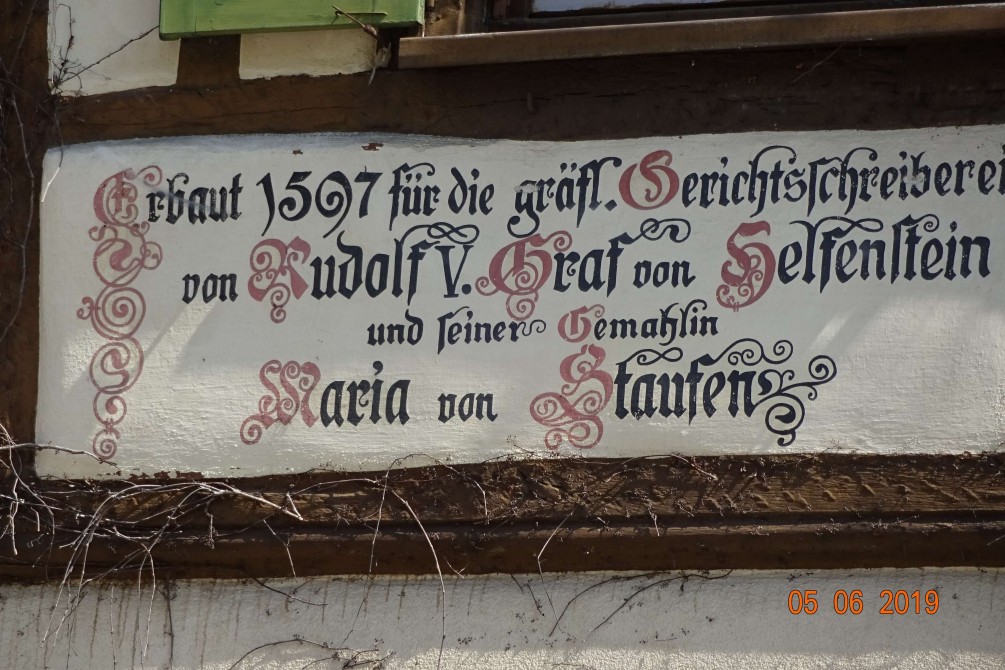 Erbaut 1597 für die gräfl. Gerichtsschreiberei
von Rudolf V. Graf von Helfenstein
und seiner Gemahlin
Maria von Staufen
05 06 2019